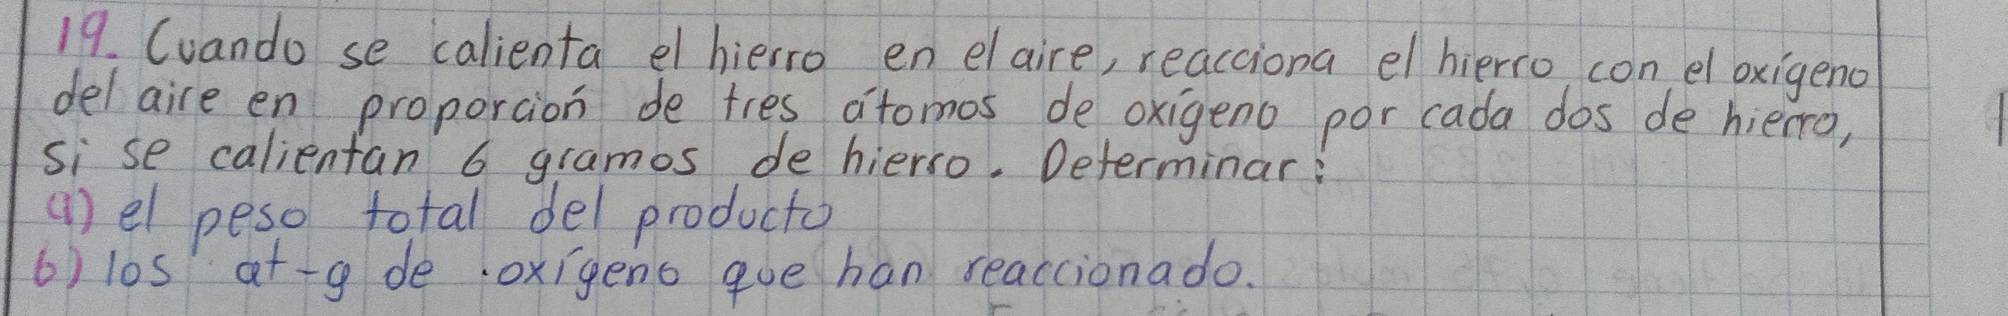 19. Cuando se calienta el hierro en el aire, reacciona el hierro con el oxígeno
del aire en proporción de tres átomos de oxígeno por cada dos de hierro,
si se calientan 6 gramos de hierro. Determinar:
a) el peso total del producto
b) los at-g de oxígeno que han reaccionado.